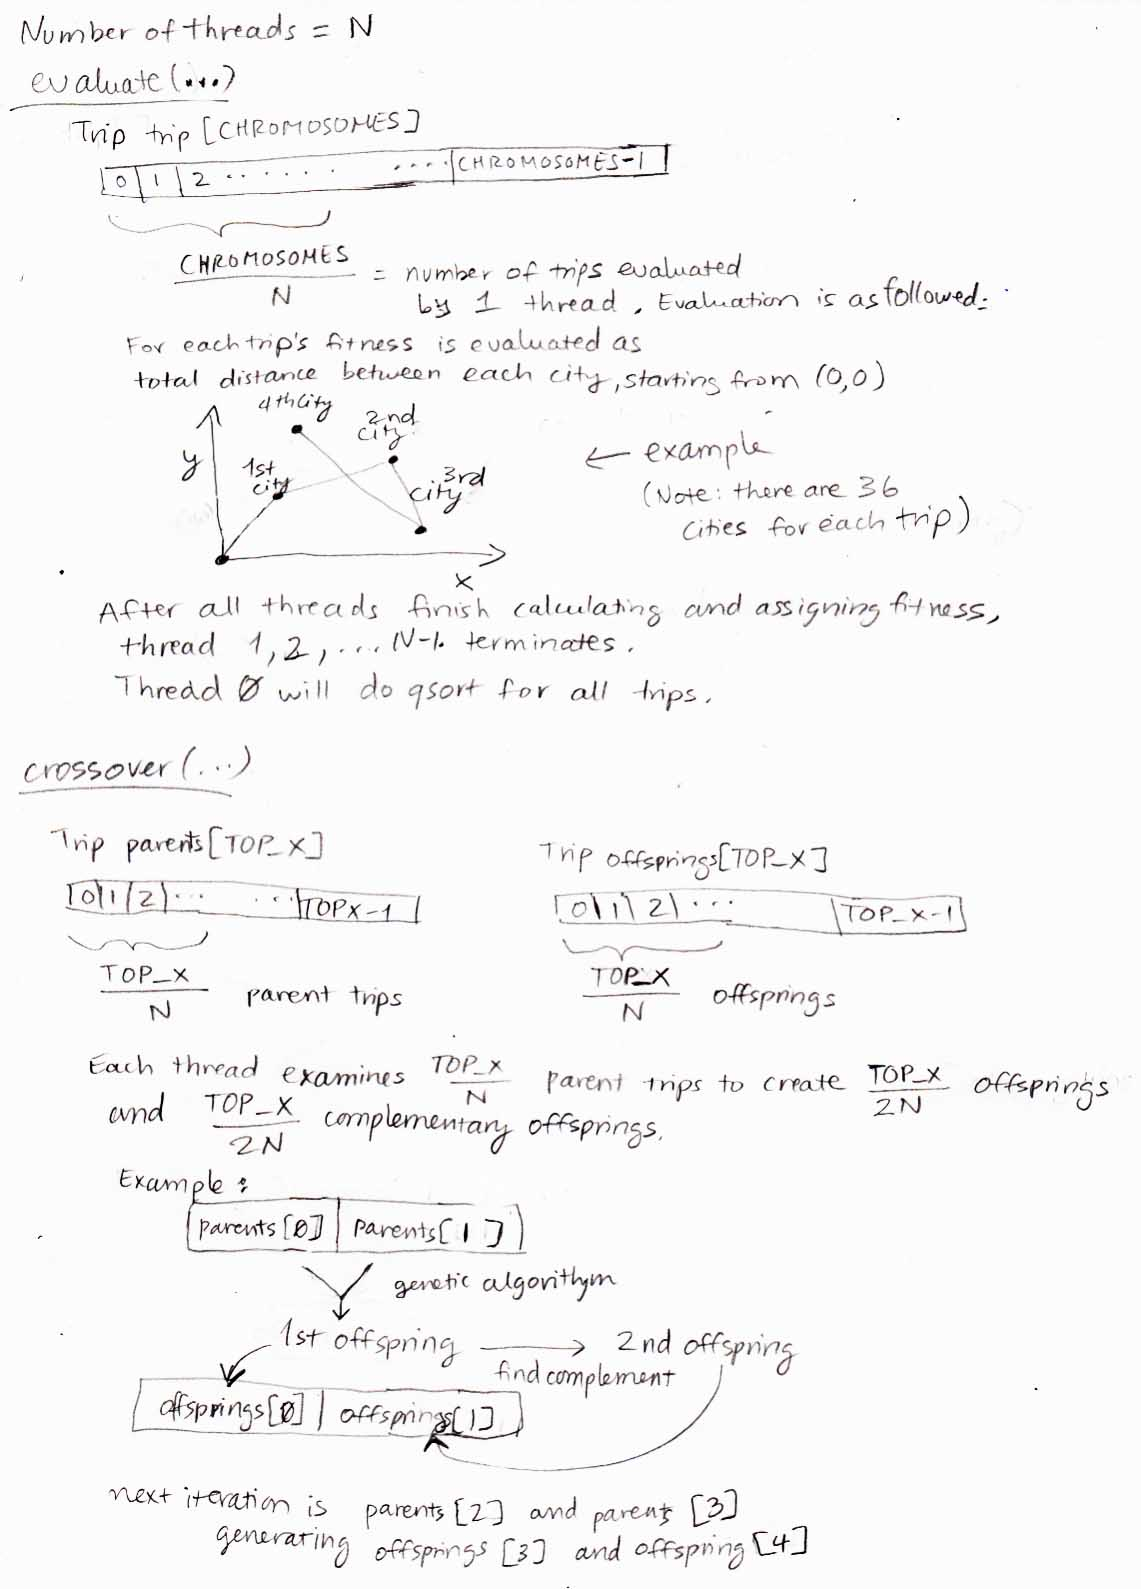 Number of threads = N
evaluate(...)
Trip trip [CHROMOSOMES]
0 | 1 | 2 ...... .... CHROMOSOMES-1
CHROMOSOMES
N
= number of trips evaluated
by 1 thread. Evaluation is as followed:
For each trip's fitness is evaluated as
total distance between each city, starting from (0,0)
4th City
2nd
city
y
1st
city
3rd
city
x
← example
(Note: there are 36
cities for each trip)
After all threads finish calculating and assigning fitness,
thread 1, 2, ... N-1. terminates.
Thread 0 will do qsort for all trips.
crossover(...)
Trip parents[TOP_X]
0 | 1 | 2 | ... ... TOPX-1
TOP_X
N
parent trips
Trip offsprings[TOP_X]
0 | 1 | 2 | ... TOP_X-1
TOP_X
N
offsprings
Each thread examines TOP_X/N parent trips to create TOP_X/2N offsprings
and TOP_X/2N complementary offsprings.
Example:
parents[0] | parents[1]
genetic algorithym
1st offspring → 2nd offspring
find complement
offsprings[0] | offsprings[1]
next iteration is parents[2] and parents [3]
generating offsprings [3] and offspring [4]